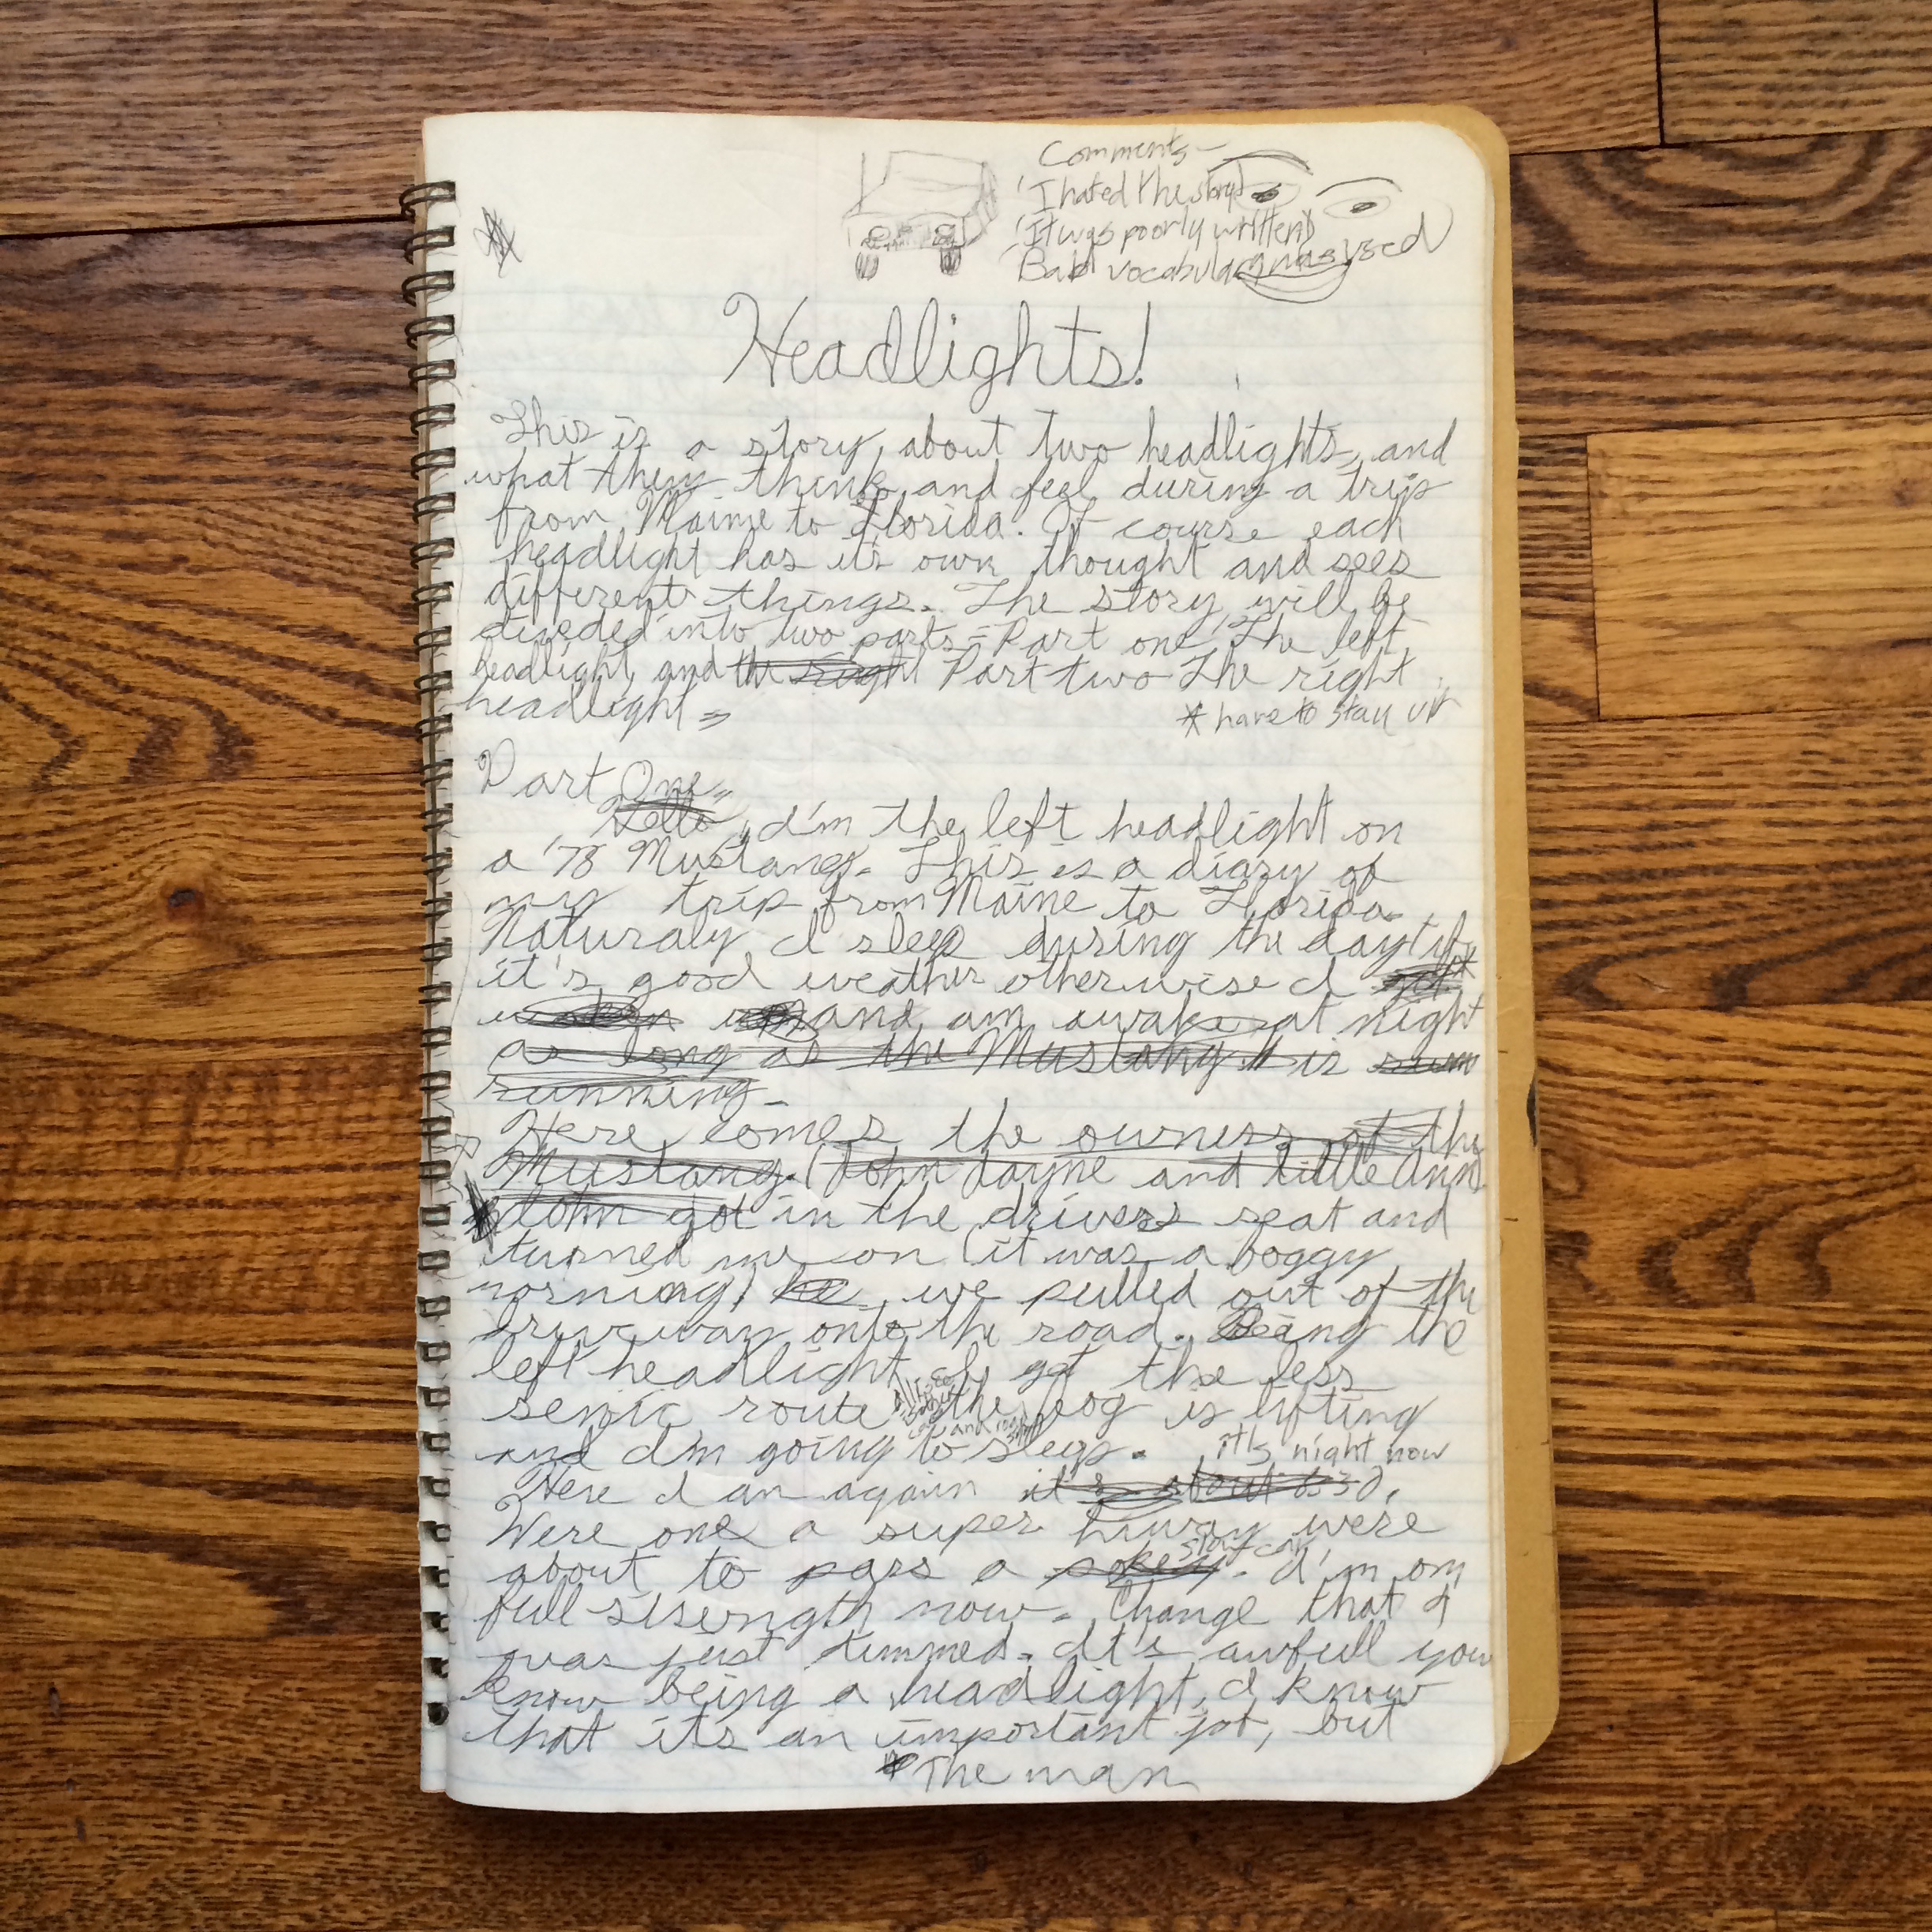 Comments-
"I hated the story"
"It was poorly written"
Bad vocabulary was used
Headlights!
This is a story about two headlights, and
what they think and feel during a trip
from Maine to Florida. Of course each
headlight has it's own thought and sees
different things. The story will be
divided into two parts = Part one, The left
headlight, and the right Part two The right
headlight =
* have to stay up
Part One
Hello, I'm the left headlight on
a '78 Mustang. This is a diary of
my trip from Maine to Florida.
Naturaly I sleep during the day if
it's good weather otherwise I
and am awake at night
as long as the Mustang is
running.
Here comes the owners of the
Mustang. (John Jayne and little Ann
John got in the drivers seat and
turned me on (it was a foggy
morning) he we pulled out of the
driveway onto the road. Being the
left headlight I get the less
senic route the fog is lifting
and I'm going to sleep.
it's night now
Here I am again it's about 6:30,
Were one a super hiway were
slow car
about to pass a pokey. I'm on
full strength now. Change that I
was just dimmed. It's awfull you
know being a headlight, I know
that it's an important job, but
* The man